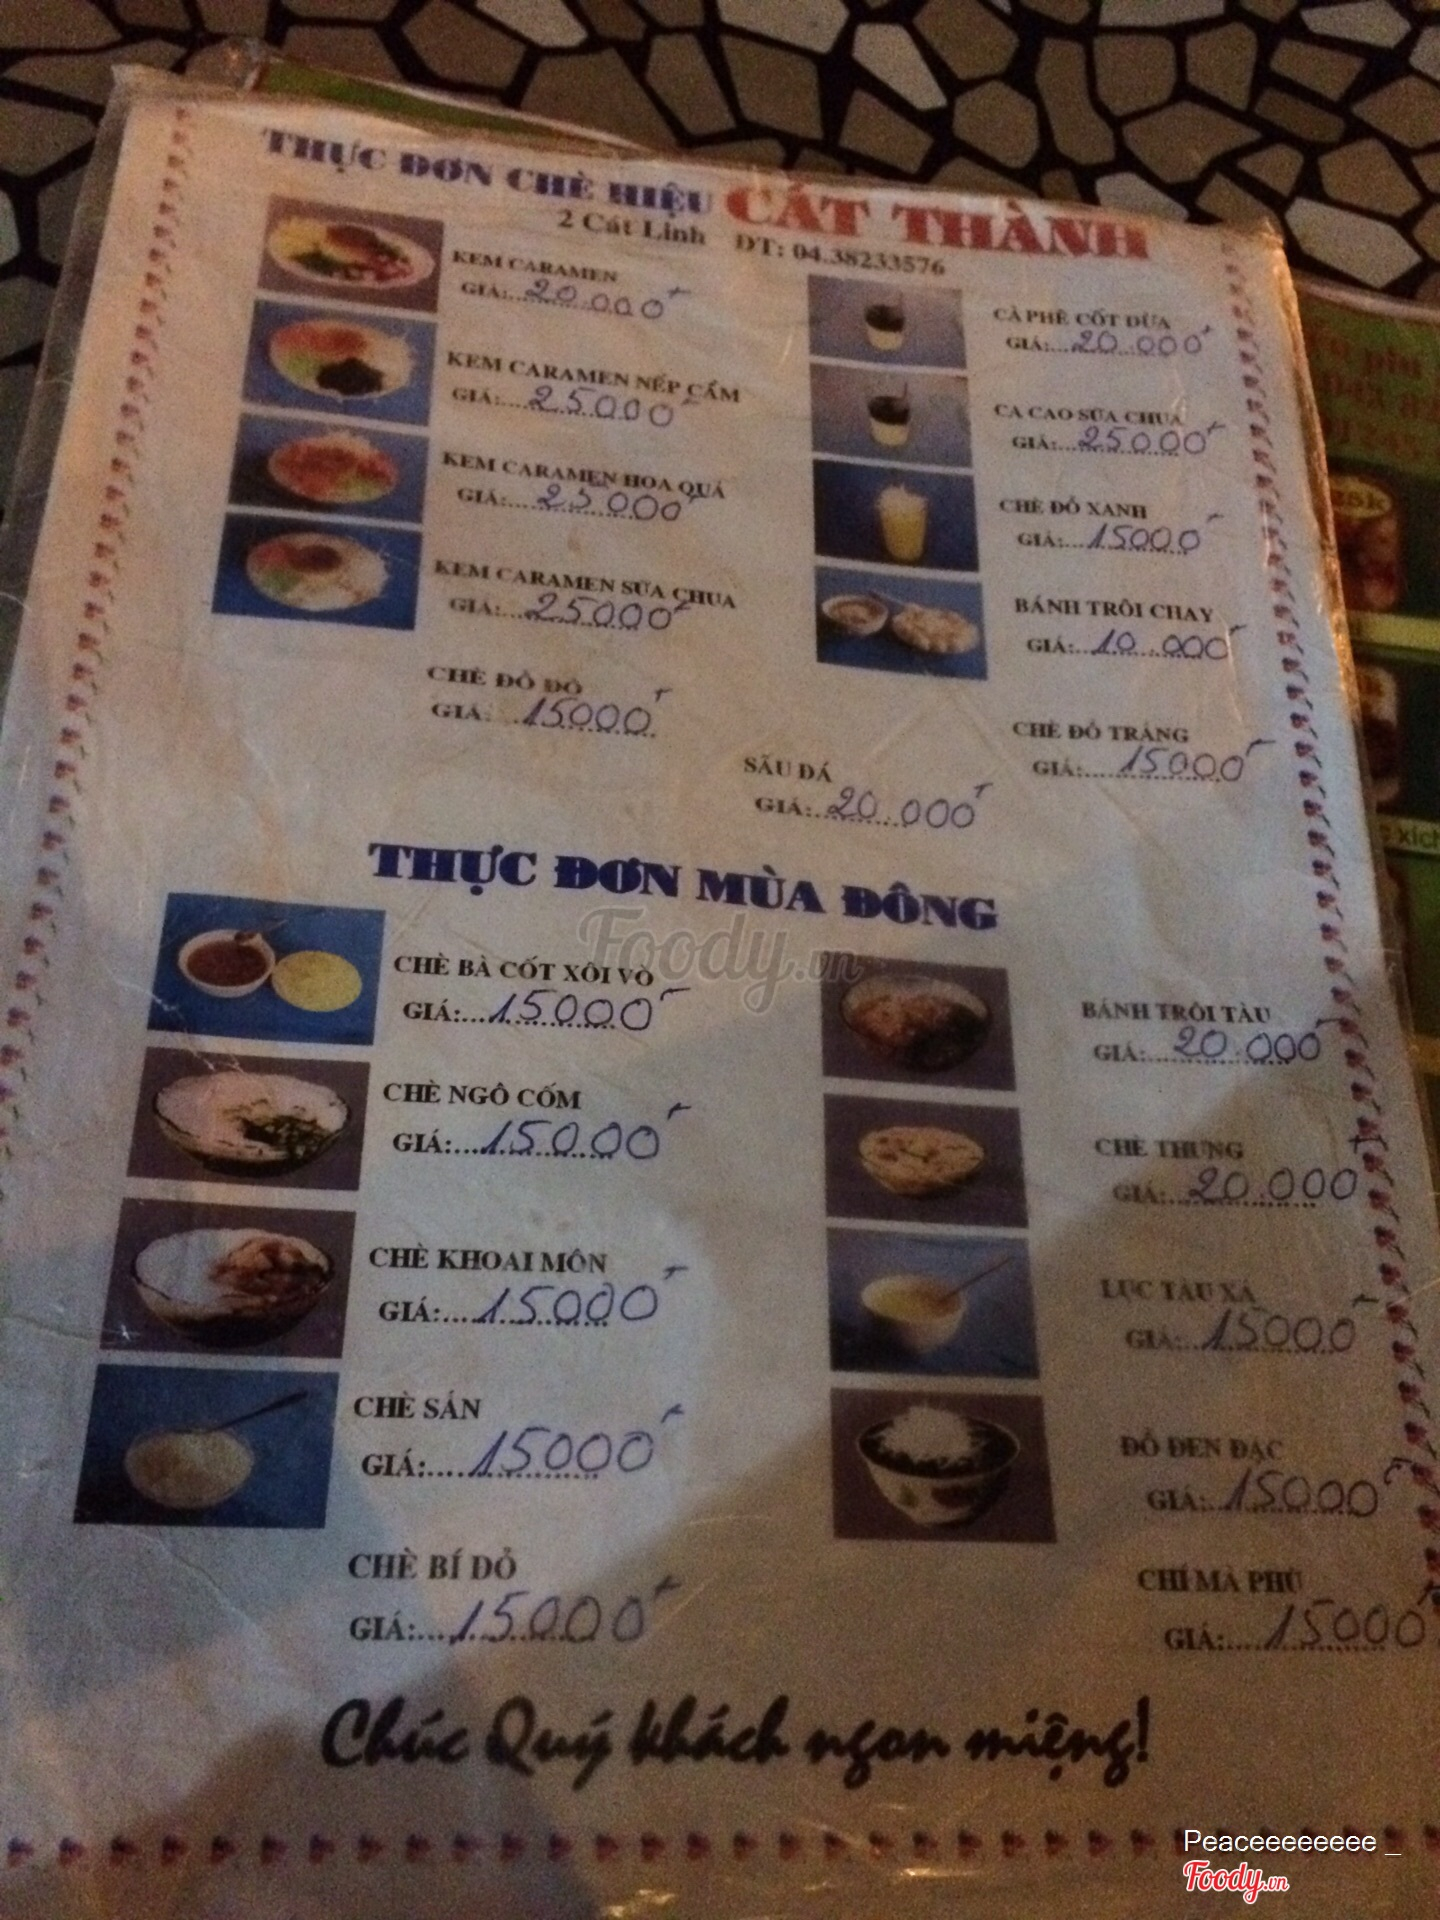 THỰC ĐƠN CHÈ HIỆU CÁT THÀNH
2 Cát Linh ĐT: 04.38233576
KEM CARAMEN
GIÁ:...20.000đ
KEM CARAMEN NẾP CẨM
GIÁ:...25000đ
KEM CARAMEN HOA QUẢ
GIÁ:...25000đ
KEM CARAMEN SỮA CHUA
GIÁ:...25000đ
CHÈ ĐỖ ĐỎ
GIÁ: 15000đ
CÀ PHÊ CỐT DỪA
GIÁ:...20.000đ
CA CAO SỮA CHUA
GIÁ:...25000đ
CHÈ ĐỖ XANH
GIÁ:...15000đ
BÁNH TRÔI CHAY
GIÁ:...10.000đ
CHÈ ĐỖ TRẮNG
GIÁ:...15000đ
SẤU ĐÁ
GIÁ:...20.000đ
THỰC ĐƠN MÙA ĐÔNG
CHÈ BÀ CỐT XÔI VÒ
GIÁ:...15000đ
CHÈ NGÔ CỐM
GIÁ:...15000đ
CHÈ KHOAI MÔN
GIÁ:...15000đ
CHÈ SẮN
GIÁ:...15000đ
CHÈ BÍ ĐỎ
GIÁ:...15000đ
BÁNH TRÔI TÀU
GIÁ:...20.000đ
CHÈ THƯNG
GIÁ:...20.000đ
LỤC TÀU XÁ
GIÁ:...15000đ
ĐỖ ĐEN ĐẶC
GIÁ:...15000đ
CHÍ MÀ PHÙ
GIÁ:...15000đ
Chúc Quý khách ngon miệng!
Foody.vn
Peaceeeeeeeee _
Foody.vn